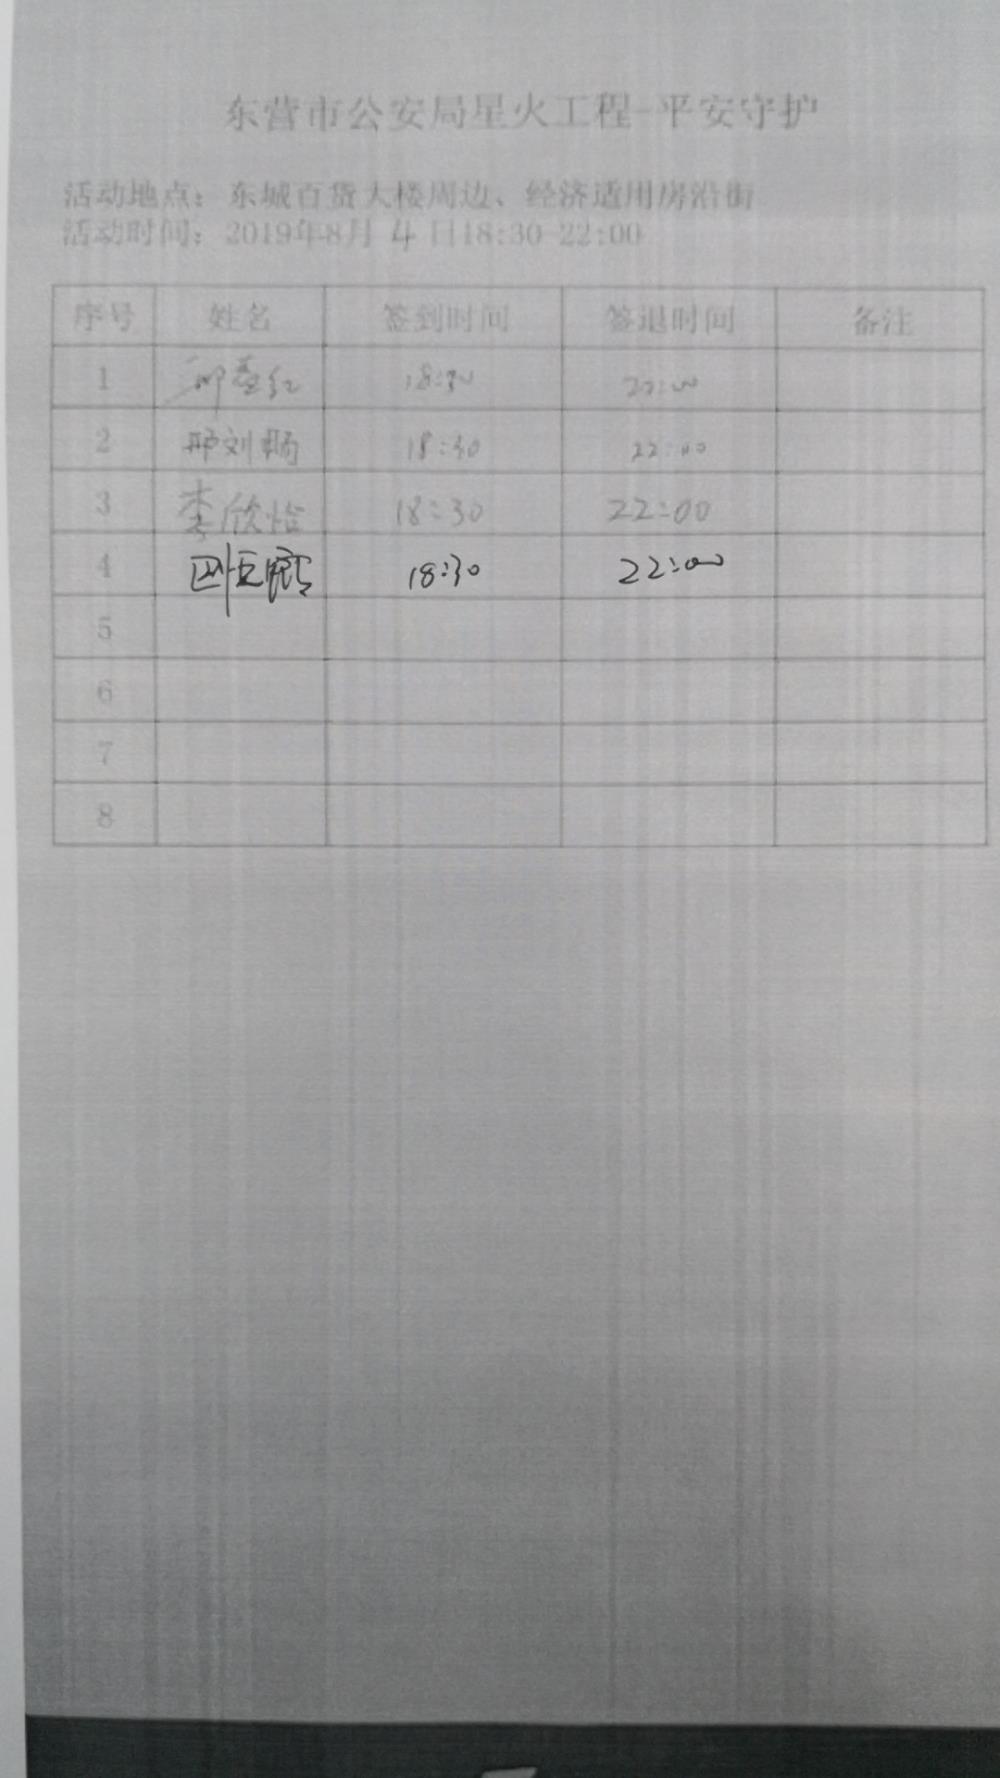 东营市公安局星火工程-平安守护
活动地点：东城百货大楼周边、经济适用房沿街
活动时间：2019年8月 4 日18:30-22:00
序号 姓名 签到时间 签退时间 备注
1 18:30 22:00
2 邢刘畅 18:30 22:00
3 李欣怡 18:30 22:00
4 18:30 22:00
5
6
7
8